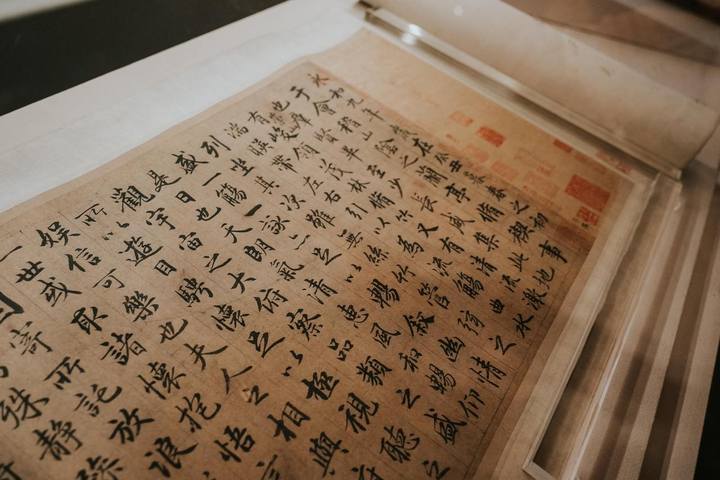 永和九年歲在癸丑暮春之初會
于會稽山陰之蘭亭脩禊事
也群賢畢至少長咸集此地
有峻領茂林脩竹又有清流激
湍暎帶左右引以為流觴曲水
列坐其次雖無絲竹管弦之
盛一觴一詠亦足以暢敘幽情
是日也天朗氣清惠風和暢仰
觀宇宙之大俯察品類之盛
所以遊目騁懷足以極視聽之
娛信可樂也夫人之相與俯
一世或取諸懷抱悟言
因寄所託放浪
殊靜躁